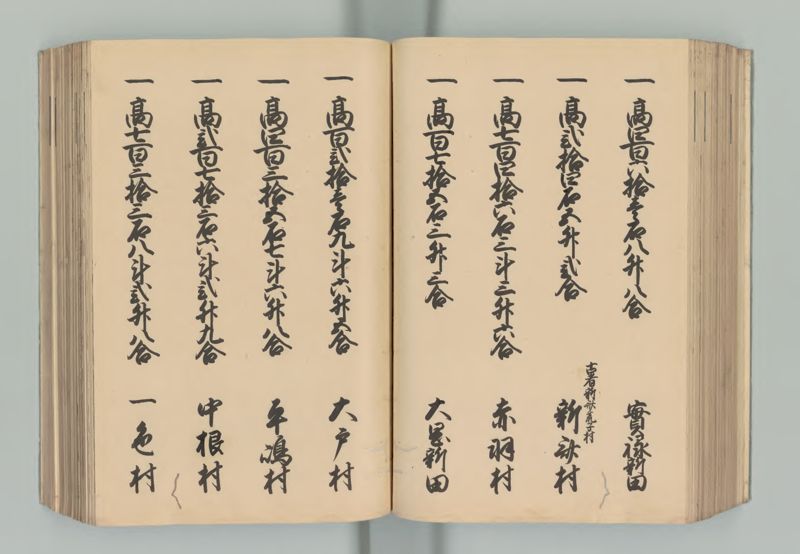 一 高四百六拾壱石八升八合 實禄新田
一 高弐拾四石五升弐合 新渡村
一 高七百四拾六石二斗三升六合 赤羽村
一 高百七拾五石三升三合 大黒新田
一 高百弐拾壱石九斗六升五合 大戸村
一 高四百三拾五石七斗六升八合 平嶋村
一 高弐百七拾三石六斗弐升九合 中根村
一 高七百三拾三石八斗弐升八合 一色村